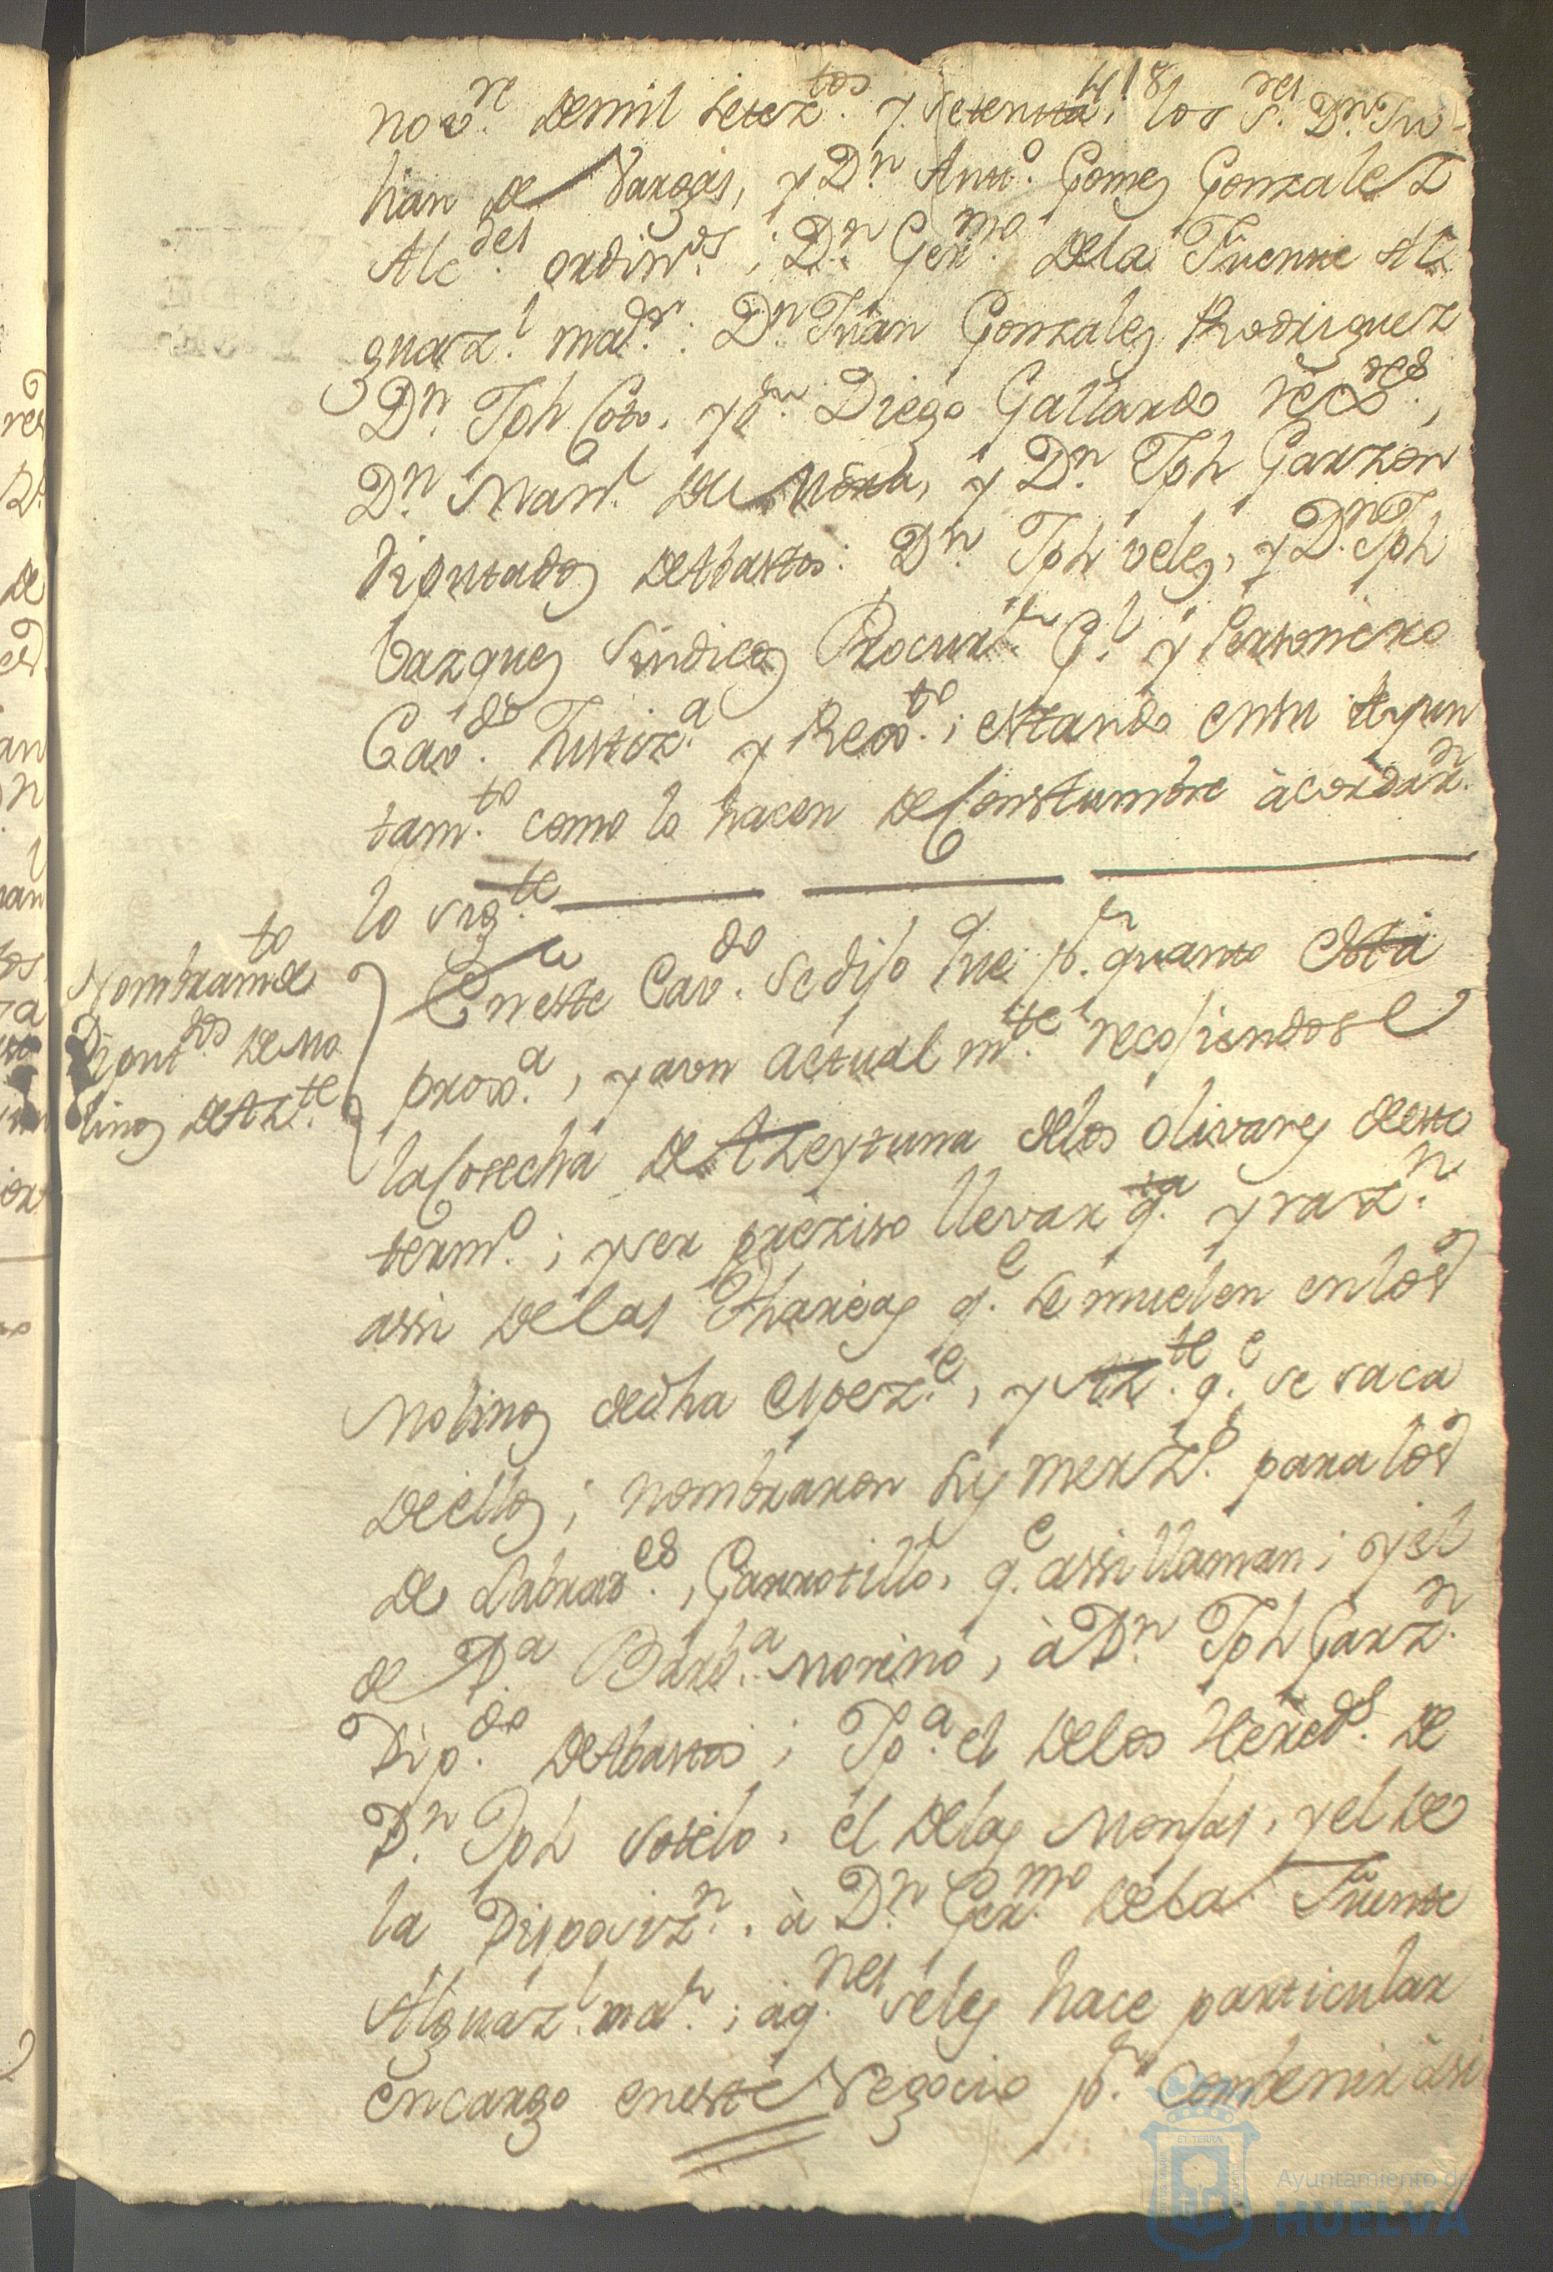 nov.re de mil setez.tos y setenta; los S.res D.n Ju-
lian de Vargas, y D.n Ant.o Gomez Gonzalez
Alc.des ordin.s; D.n Ger.mo de la Fuente Al
guaz.l ma.or: D.n Juan Gonzalez Rodriguez
D.n Jph Coto, y D.n Diego Gallardo rexid.res,
D.n Man.l de Mora, y D.n Jph Garzon
diputados de Abastos: D.n Jph velez, y D.n Jph
bazquez Sindicos Procur.r G.l y Personero
Cav.do Justiz.a y Rex.to; estando en su Ayun
tam.to como lo hacen de Constumbre àcordar.n
lo sig.te
Nombram.to de
Diput.dos de Mo
linos de Az.te
En este Cav.do se dijo que p.r quanto està
prox.a, y aun actualm.te recojiendose
la Cosecha de Azeytuna de los olivares de este
term.o; y ser preziso llevar q.ta y raz.n
assi de las Thareas q.e se muelen en los
Molinos de dha espez.e, y Az.te q.e se saca
de ellos; nombraron Sus merz.s para los
de Labrad.es, Garrotillo, q.e assi llaman; y el
de D.a Barb.a Morino, à D.n Jph Garz.n
Dip.do de Abastos; Jp.a el de los Hered.s de
D.n Jph Sotelo, el de las Monjas, y el de
la Disposiz.n, à D.n Ger.mo de la Fuente
Alguaz.l ma.r; àq.nes se les hace particular
encargo en este Negocio p.r combenir àsi
Ayuntamiento de
HUELVA